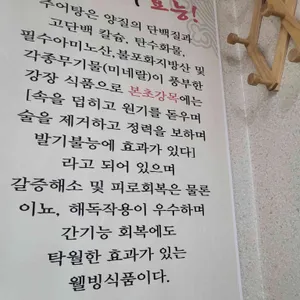 효능!
추어탕은 양질의 단백질과
고단백 칼슘, 탄수화물,
필수아미노산, 불포화지방산 및
각종무기물(미네랄)이 풍부한
강장 식품으로 본초강목에는
[속을 덥히고 원기를 돋우며
술을 제거하고 정력을 보하며
발기불능에 효과가 있다]
라고 되어 있으며
갈증해소 및 피로회복은 물론
이뇨, 해독작용이 우수하며
간기능 회복에도
탁월한 효과가 있는
웰빙식품이다.